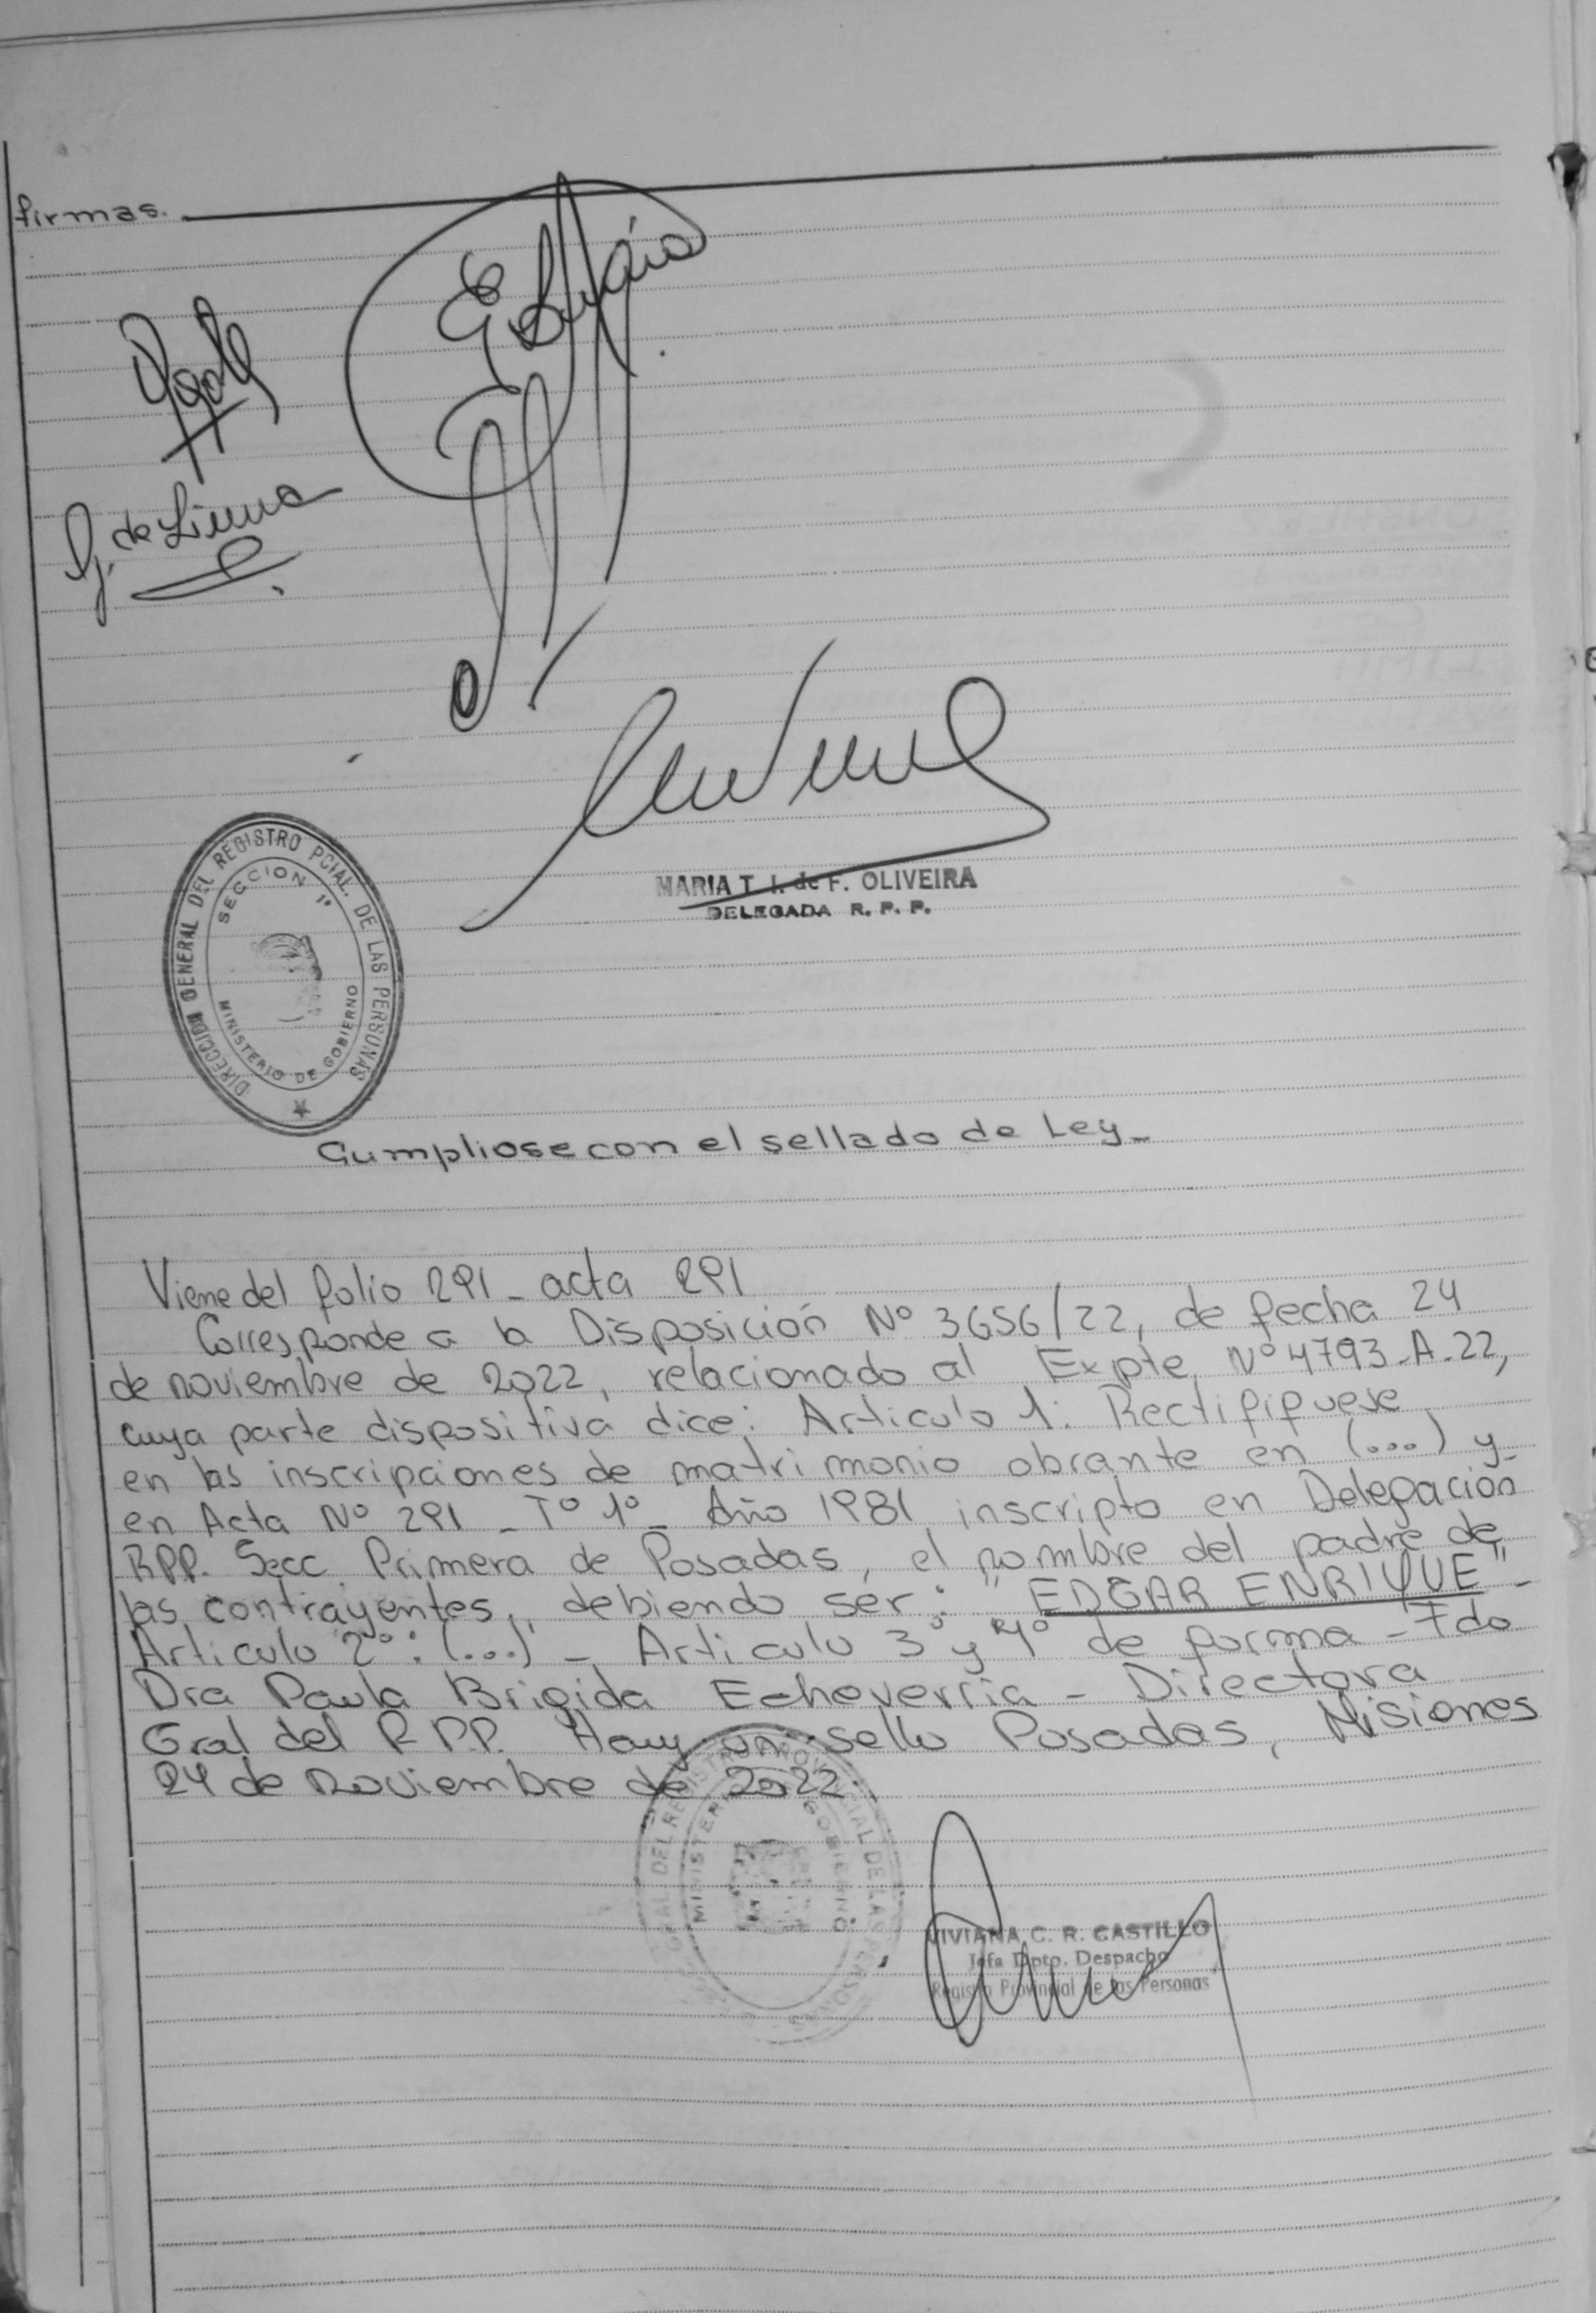 firmas.
G. de Lima
MARIA T. I. de F. OLIVEIRA
DELEGADA R. P. P.
DIRECCION GENERAL DEL REGISTRO PCIAL. DE LAS PERSONAS
SECCION 1º
MINISTERIO DE GOBIERNO
Cumpliose con el sellado de Ley_
Viene del folio 291 - acta 291
Corresponde a la Disposición Nº 3656/22, de fecha 24
de noviembre de 2022, relacionado al Expte Nº 4793-A-22,
cuya parte dispositiva dice: Articulo 1: Rectifiquese
en las inscripciones de matrimonio obrante en (...) y
en Acta Nº 291 - Tº 1º - Año 1981 inscripto en Delegación
RPP. Secc. Primera de Posadas, el nombre del padre de
las contrayentes, debiendo ser: "EDGAR ENRIQUE" -
Articulo 2º: (...) - Articulo 3º y 4º de forma - Fdo
Dra Paula Brigida Echeverria - Directora
Gral del R.P.P. Hay un sello Posadas, Misiones
24 de Noviembre de 2022.
MINISTERIO GOBIERNO
VIVIANA C. R. CASTILLO
Jefa Dpto. Despacho
Registro Provincial de las Personas